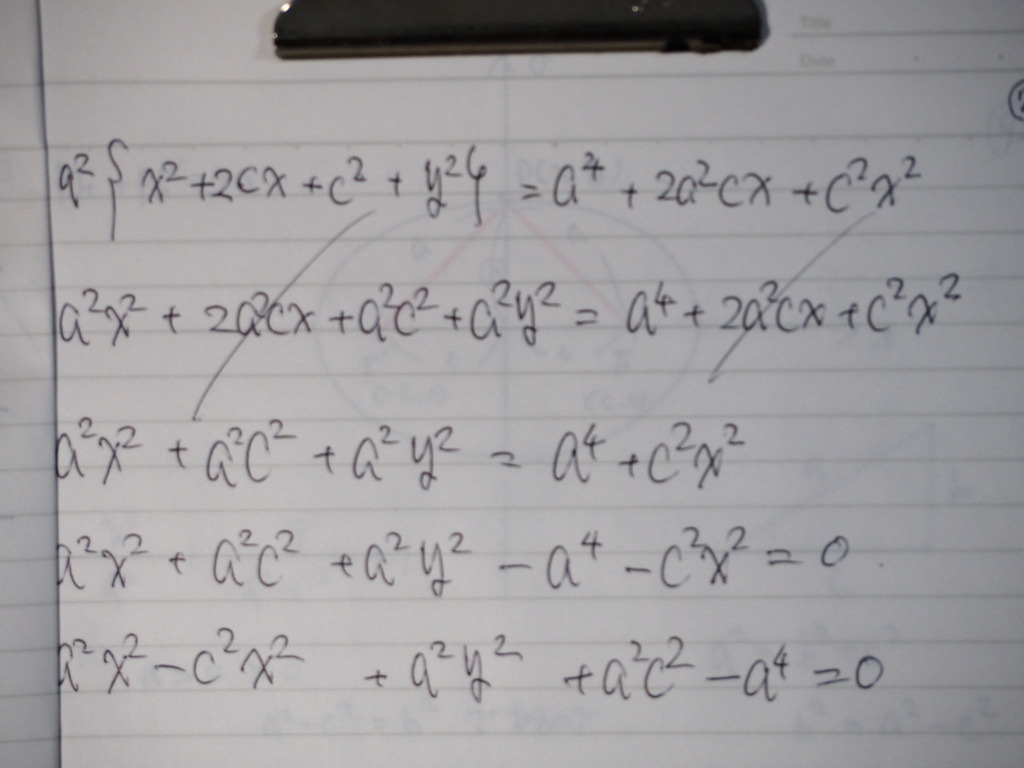 Title
Date
a² { x² + 2cx + c² + y² } = a⁴ + 2a²cx + c²x²
a²x² + 2a²cx + a²c² + a²y² = a⁴ + 2a²cx + c²x²
a²x² + a²c² + a²y² = a⁴ + c²x²
a²x² + a²c² + a²y² - a⁴ - c²x² = 0
a²x² - c²x² + a²y² + a²c² - a⁴ = 0